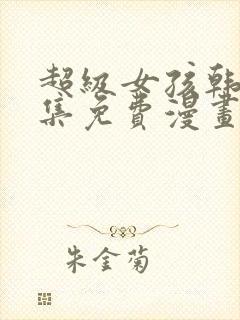 超级女孩韩
集免费漫畫
朱金菊